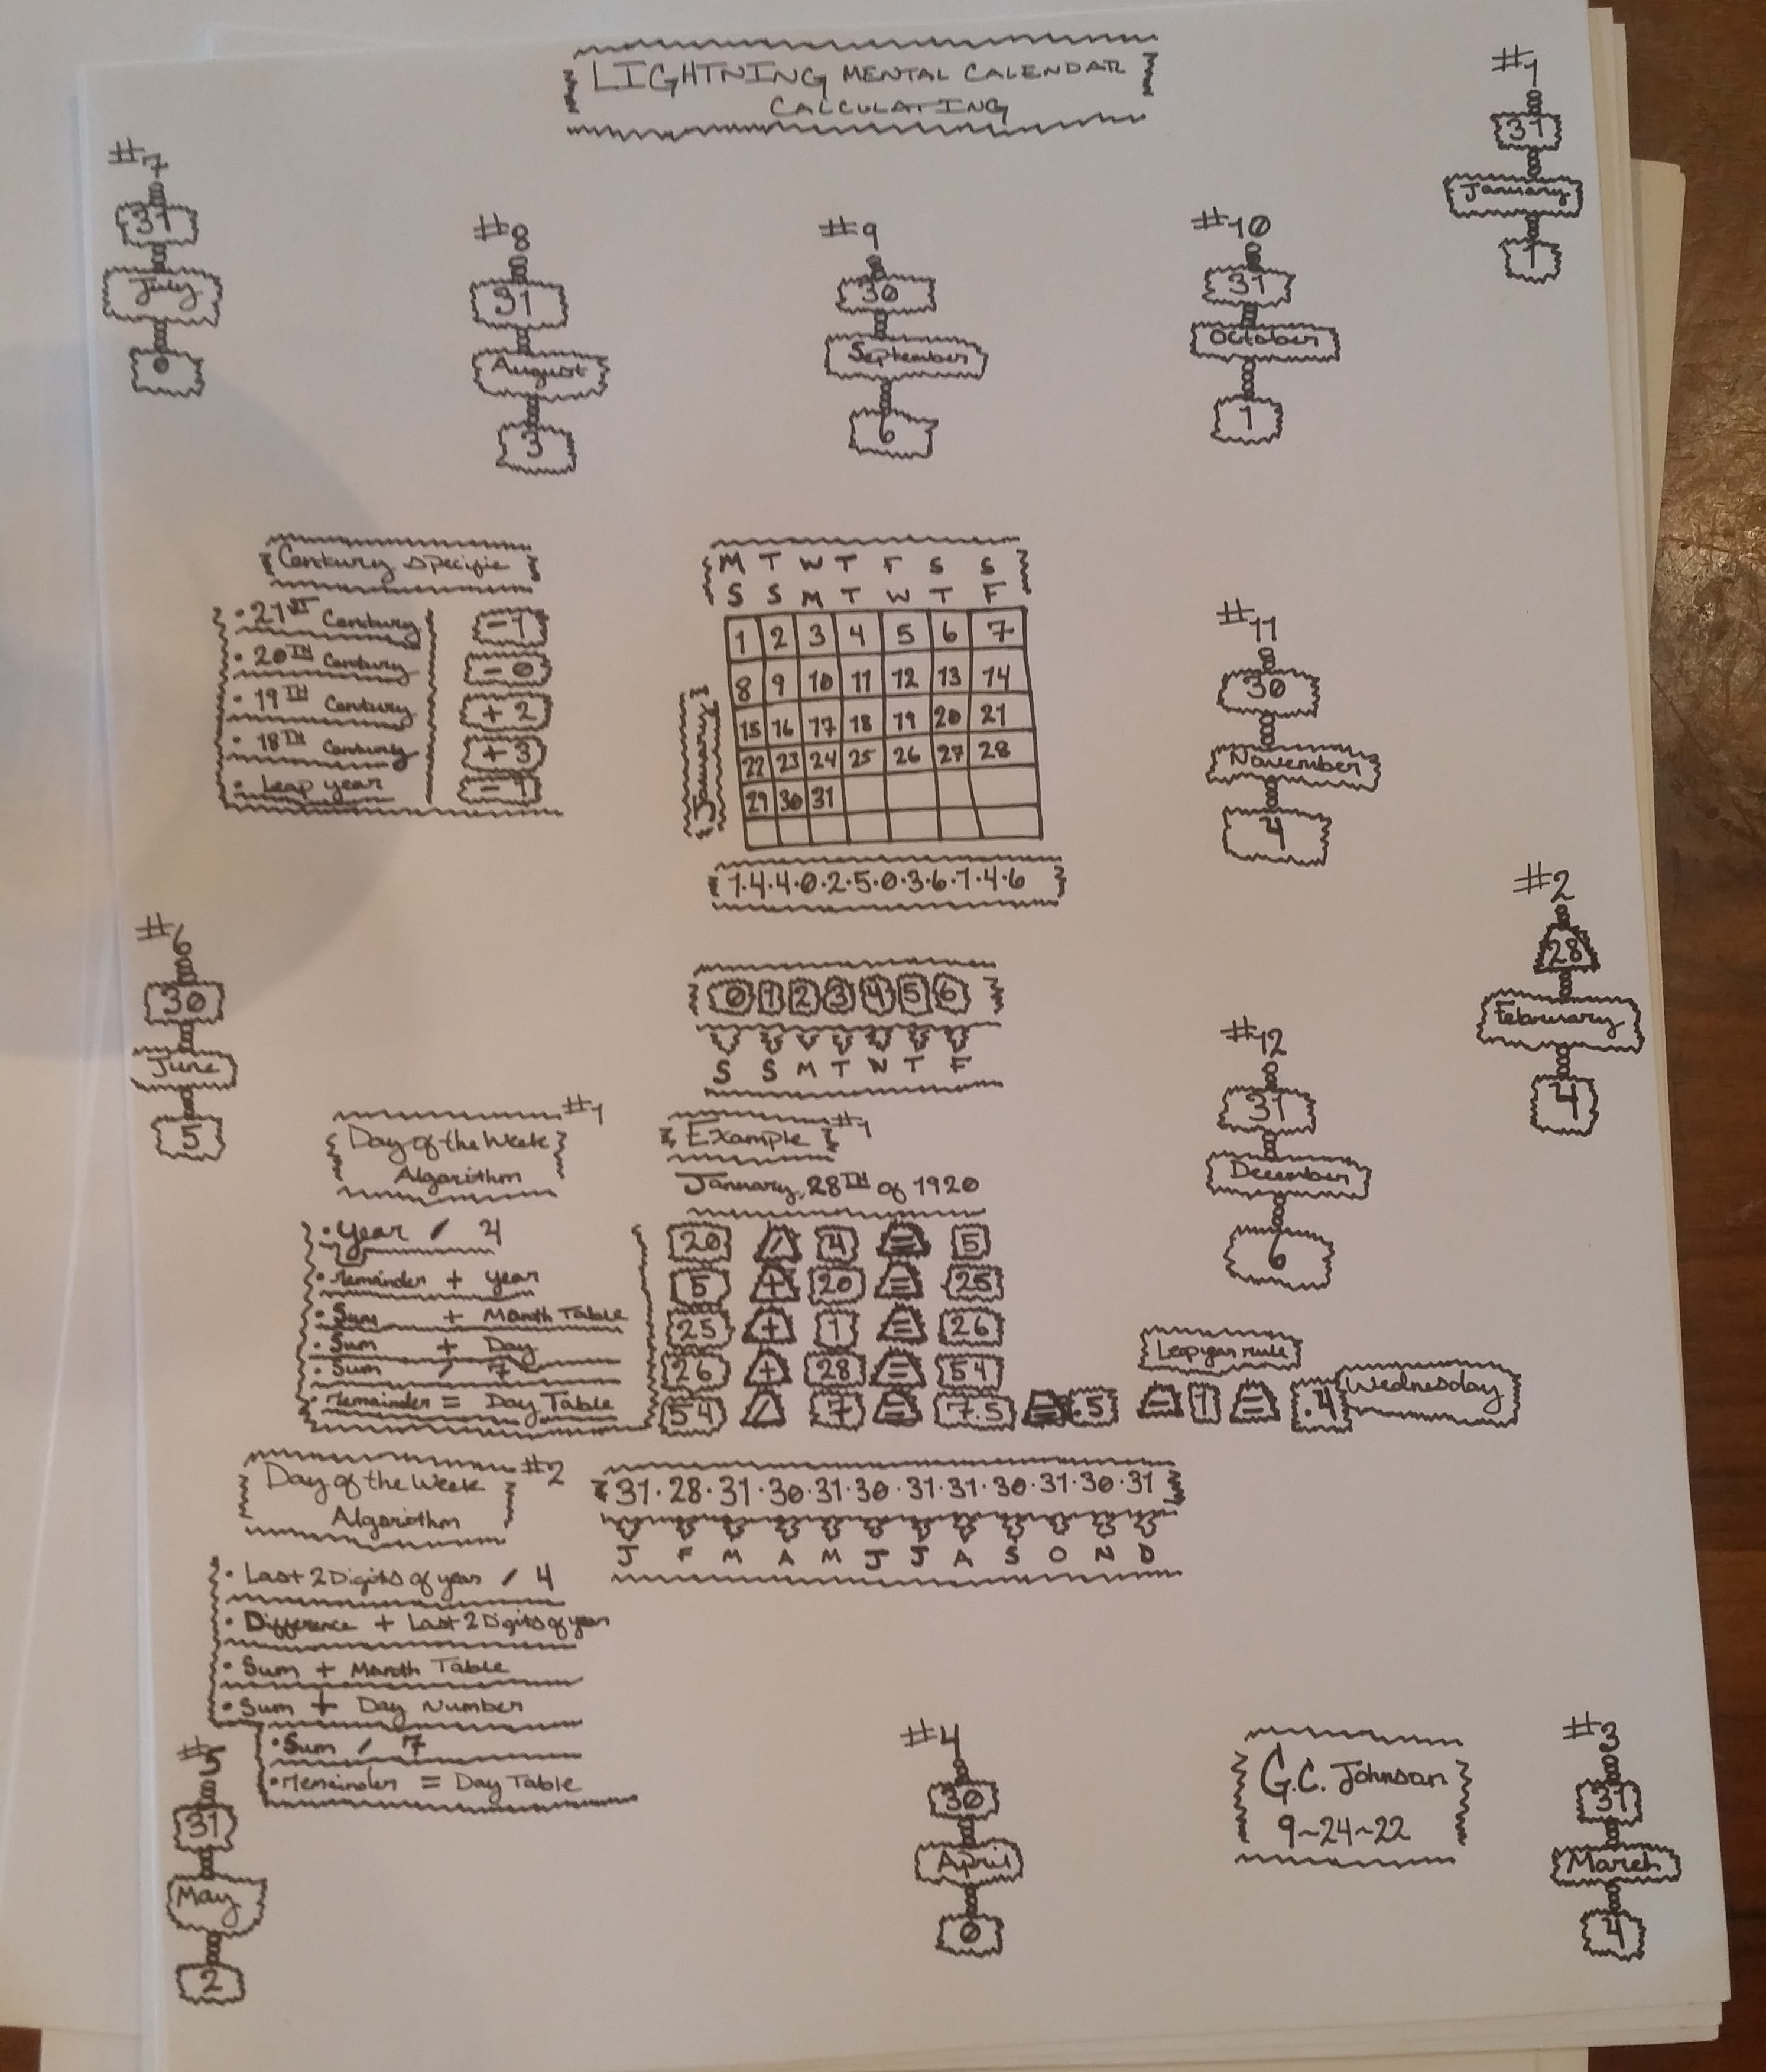 LIGHTNING MENTAL CALENDAR
CALCULATING
#1
31
January
1
#7
31
July
0
#8
31
August
3
#9
30
September
6
#10
31
October
1
Century specific
• 21ST Century -1
• 20TH Century - 0
• 19TH Century + 2
• 18TH Century + 3
• Leap year -1
M T W T F S S
S S M T W T F
January
1 2 3 4 5 6 7
8 9 10 11 12 13 14
15 16 17 18 19 20 21
22 23 24 25 26 27 28
29 30 31
1·4·4·0·2·5·0·3·6·1·4·6
#11
30
November
4
#2
28
February
4
#6
30
June
5
0 1 2 3 4 5 6
S S M T W T F
#12
31
December
6
Day of the Week #1
Algorithm
• Year / 4
• Remainder + year
• Sum + Month Table
• Sum + Day
• Sum / 7
• Remainder = Day Table
Example #1
January, 28TH of 1920
20 / 4 = 5
5 + 20 = 25
25 + 1 = 26
26 + 28 = 54
Leap year rule
54 / 7 = 7.5 = .5 - 1 = .4 Wednesday
Day of the Week #2
Algorithm
• Last 2 Digits of year / 4
• Difference + Last 2 Digits of year
• Sum + Month Table
• Sum + Day Number
• Sum / 7
• Remainder = Day Table
31·28·31·30·31·30·31·31·30·31·30·31
J F M A M J J A S O N D
#5
31
May
2
#4
30
April
0
G.C. Johnson
9~24~22
#3
31
March
4